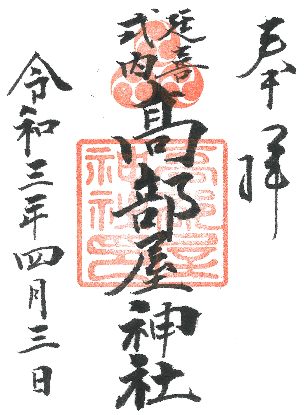 奉拝
延喜
式内
高部屋神社
高部屋
神社印
令和三年四月三日